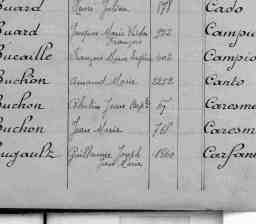 uard Henri Julien 178 Cado
uard Jacques Marie Victor François 952 Campu
ucaille François 902 Campio
uchon Amand Marie 2252 Canto
uchon Célestin Jean Bapte 67 Caresm
uchon Jean Marie 767 Caresm
ugault Guillaume Joseph Jean Marie 1560 Carfan